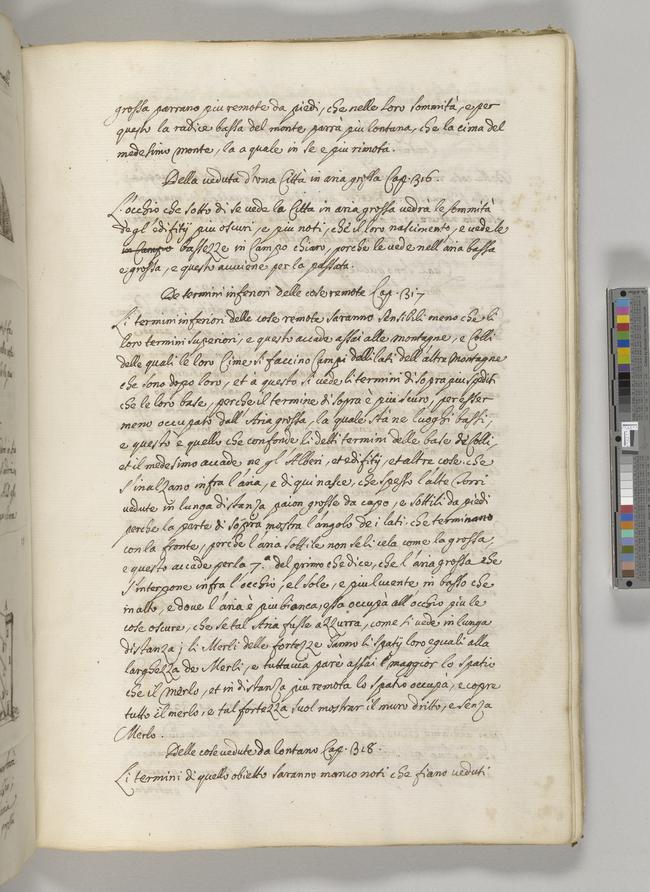 grossa parrano piu remote da piedi, che nelle loro sommità, e per
questo la radice bassa del monte parrà piu lontana, che la cima del
medesimo monte, la quale in se e piu rimota.
Della veduta d'una Città in aria grossa Cap. 316.
L'occhio che sotto di se vede la Città in aria grossa vedrà le sommità
degl'edifitij piu oscuri, e piu noti, che il loro nascimento, e vede le
in Campo bassezze in Campo chiaro, perche le vede nell'aria bassa
e grossa, e questo avviene per la passata.
De termini inferiori delle cose remote Cap. 317
Li termini inferiori delle cose remote saranno sensibili meno che li
loro termini superiori, e questo accade assai alle montagne, e Colli
delle quali le loro Cime si faccino Campi dalli lati dell'altre Montagne
che sono dopo loro, et a questo si vede li termini di sopra piu spediti
che le loro base, perche il termine di sopra è piu scuro, per esser
meno occupato dall'Aria grossa, la quale sta ne luoghi bassi,
e questo è quello che confonde li detti termini delle base de Colli,
et il medesimo accade ne gl'Alberi, et edifitij, et altre cose che
s'inalzano infra l'aria, e di qui nasce, che spesso l'alte Torri
vedute in lunga distanza paion grosse da capo, e sottili da piedi
perche la parte di sopra mostra l'angolo de i lati che terminano
con la fronte, perche l'aria sottile non te li cela come la grossa,
e questo accade per la 7.a del primo che dice, che l'aria grossa che
s'interpone infra l'occhio, e'l sole, e piu lucente in basso che
in alto, e dove l'aria è piu bianca, essa occupa all'occhio piu le
cose oscure, che se tal Aria fusse azzurra, come si vede in lunga
distanza; li Merli delle fortezze hanno li spatij loro eguali alla
larghezza de Merli, e tuttavia pare assai maggior lo spatio
che il merlo, et in distanza piu remota lo spatio occupa, e copre
tutto il merlo, e tal fortezza suol mostrar il muro dritto, e senza
Merlo.
Delle cose vedute da lontano Cap. 318.
Li termini di quello obietto saranno manco noti che fiano veduti